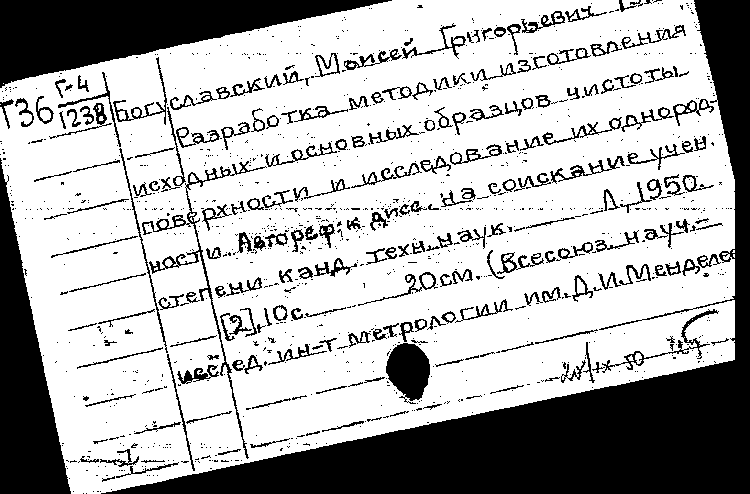 Г36 Г-4
1238
Богуславский, Моисей Григорьевич
Разработка методики изготовления
исходных и основных образцов чистоты
поверхности и исследование их однород-
ности. Автореф. к дисс. на соискание учен.
степени канд. техн. наук. Л., 1950.
[2], 10с. 20см. (Всесоюз. науч.-
исслед. ин-т метрологии им. Д.И. Менделее